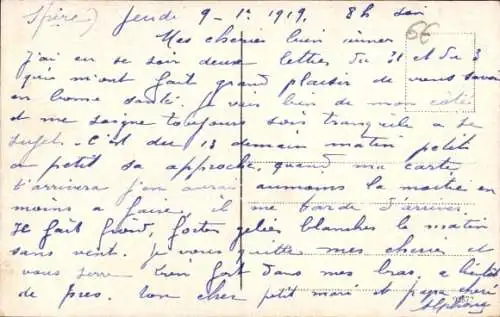 Spire) Jeudi 9-1e 1919, 8h soir
Mes cheries bien aimees
J'ai eu ce soir deux lettres du 31 et du 3
qui m'ont fait grand plaisir de vous savoir
en bonne santé. Je vais bien de mon côté
et me soigne toujours soit tranquille a ce
sujet. C'est du 13 demain matin petit
a petit sa approche, quand ma carte
t'arrivera j'en aurai aumoins la moitié en
moins a faire, il me tarde d'arriver.
Il fait froid, fortes gelées blanches le matin
sans vent. Je vous quitte mes cheries et
vous serre bien fort dans mes bras, a bientôt
de pres. Ton cher petit mari et papa cheri
Alphonse
6E